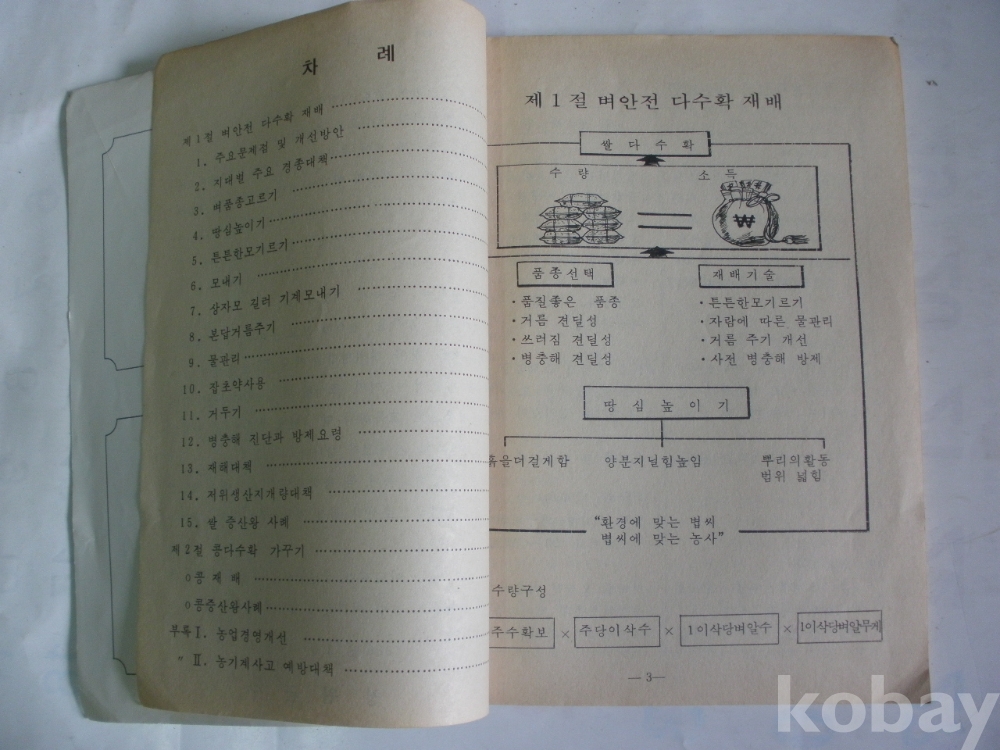 차 례
제1절 벼안전 다수확 재배
1. 주요문제점 및 개선방안
2. 지대별 주요 경종대책
3. 벼품종고르기
4. 땅심높이기
5. 튼튼한모기르기
6. 모내기
7. 상자모 길러 기계모내기
8. 본답거름주기
9. 물관리
10. 잡초약사용
11. 거두기
12. 병충해 진단과 방제요령
13. 재해대책
14. 저위생산지개량대책
15. 쌀 증산왕 사례
제2절 콩다수확 가꾸기
o콩 재 배
o콩증산왕사례
부록Ⅰ. 농업경영개선
〃 Ⅱ. 농기계사고 예방대책
제1절 벼안전 다수확 재배
쌀다수확
수 량 소 득
₩
품종선택 재배기술
·품질좋은 품종 ·튼튼한모기르기
·거름 견딜성 ·자람에 따른 물관리
·쓰러짐 견딜성 ·거름 주기 개선
·병충해 견딜성 ·사전 병충해 방제
땅심높이기
흙을더걸게함 양분지닐힘높임 뿌리의활동
범위 넓힘
"환경에 맞는 볍씨
볍씨에 맞는 농사"
수량구성
주수확보 × 주당이삭수 × 1이삭당벼알수 × 1이삭당벼알무게
— 3 —
kobay